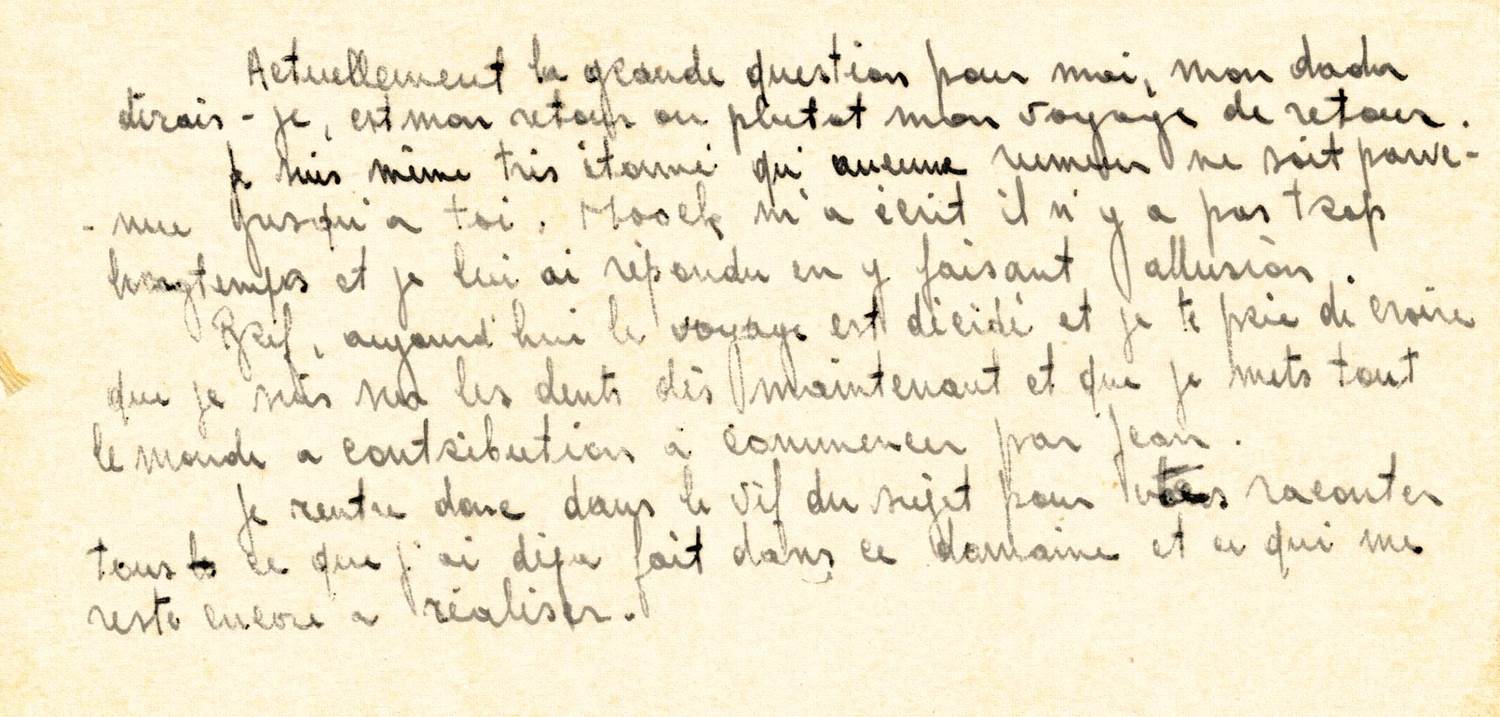 Actuellement la grande question pour moi, mon dada
dirais-je, est mon retour ou plutot mon voyage de retour.
Je suis même très étonné qu'aucune rumeur ne soit parve-
-nue jusqu'a toi. m'a écrit il n'y a pas trop
longtemps et je lui ai répondu en y faisant allusion.
Bref, aujourd'hui le voyage est décidé et je te prie de croire
que je suis sur les dents dès maintenant et que je mets tout
le monde a contribution à commencer par Jean.
Je rentre donc dans le vif du sujet pour raconter
tous ce que j'ai déja fait dans ce domaine et ce qui me
reste encore a réaliser.